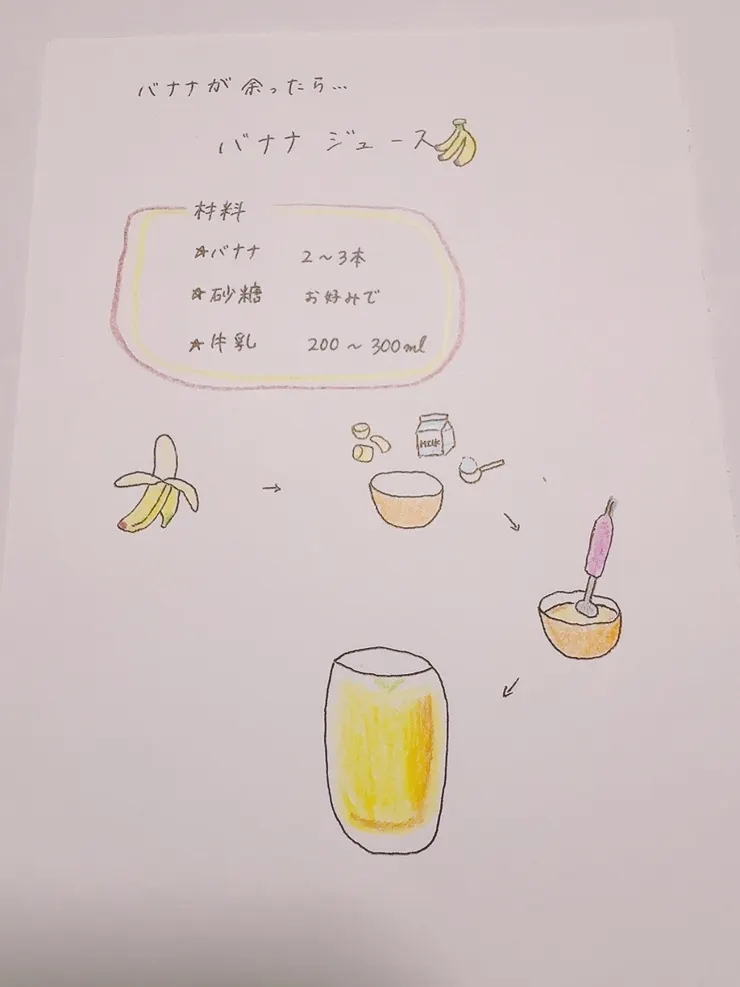 バナナが余ったら…
バナナ ジュース
材料
☆バナナ 2〜3本
☆砂糖 お好みで
☆牛乳 200〜300ml
MILK